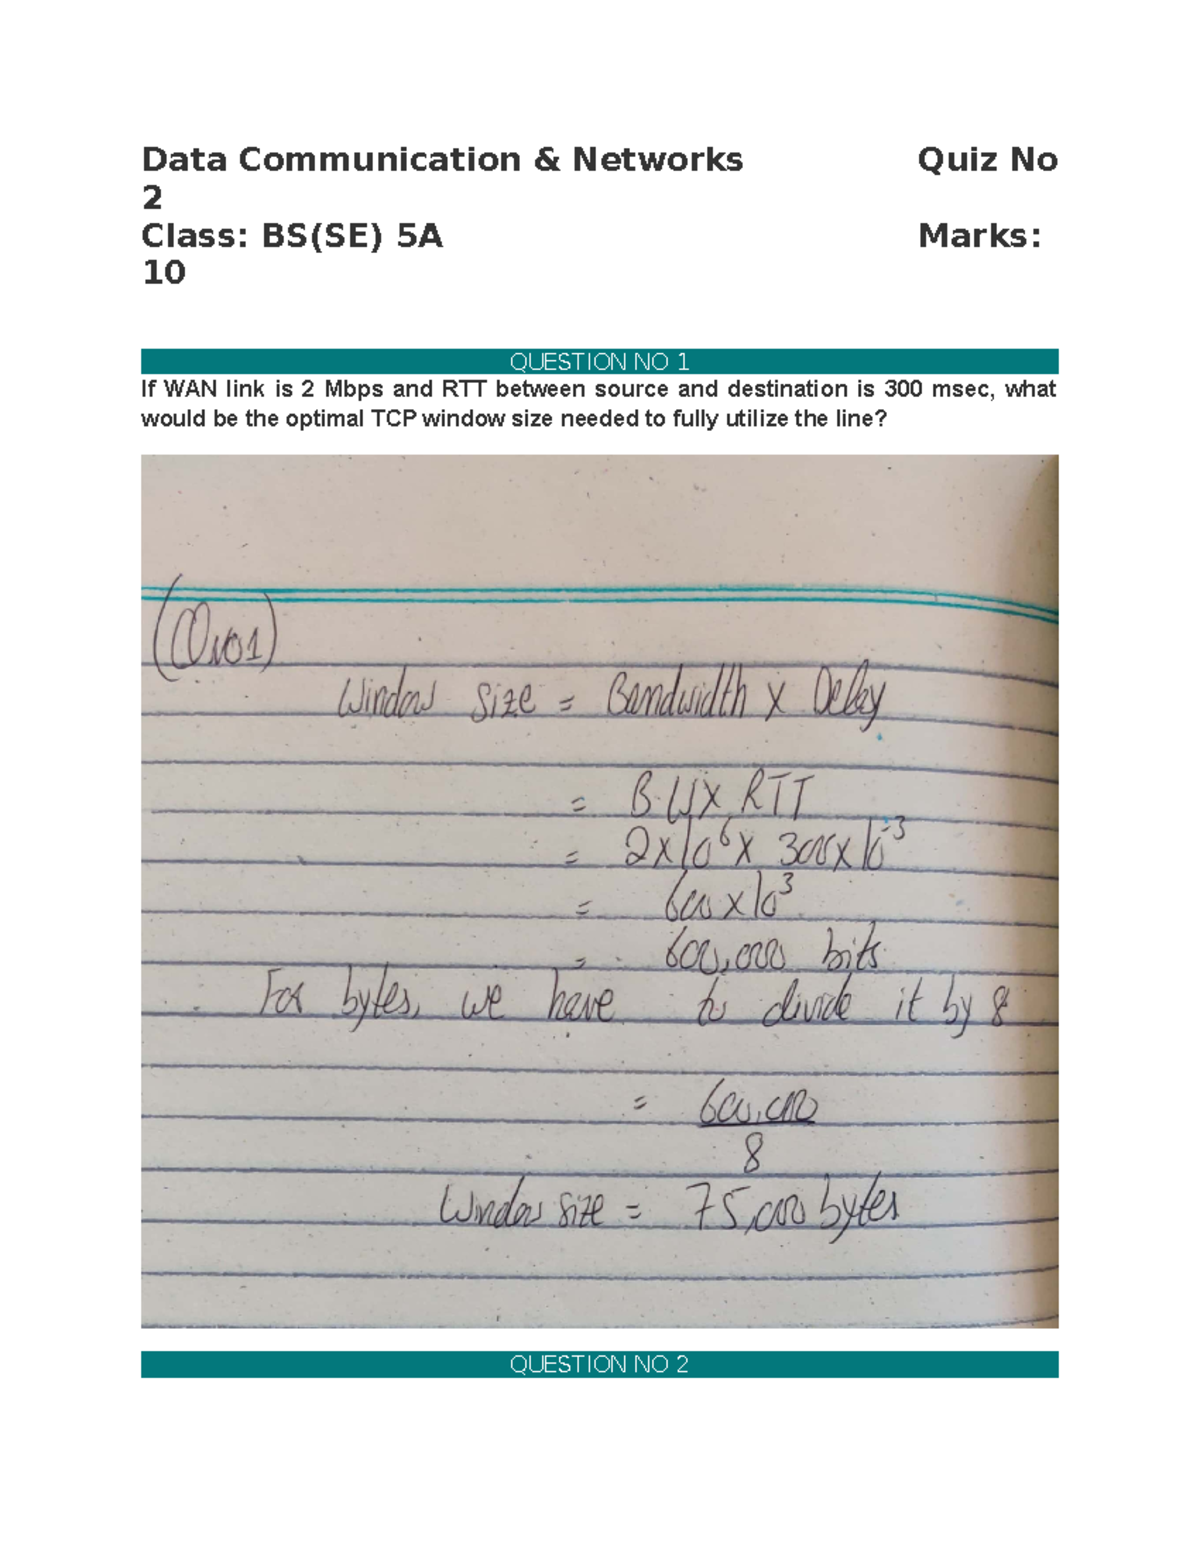 Data Communication & Networks Quiz No
2
Class: BS(SE) 5A Marks:
10
QUESTION NO 1
If WAN link is 2 Mbps and RTT between source and destination is 300 msec, what
would be the optimal TCP window size needed to fully utilize the line?
(QNo1)
Window Size = Bandwidth x Delay
= B.W x RTT
= 2x10⁶ x 300x10⁻³
= 600 x 10³
= 600,000 bits
For bytes, we have to divide it by 8
= 600,000
8
Window size = 75,000 bytes
QUESTION NO 2